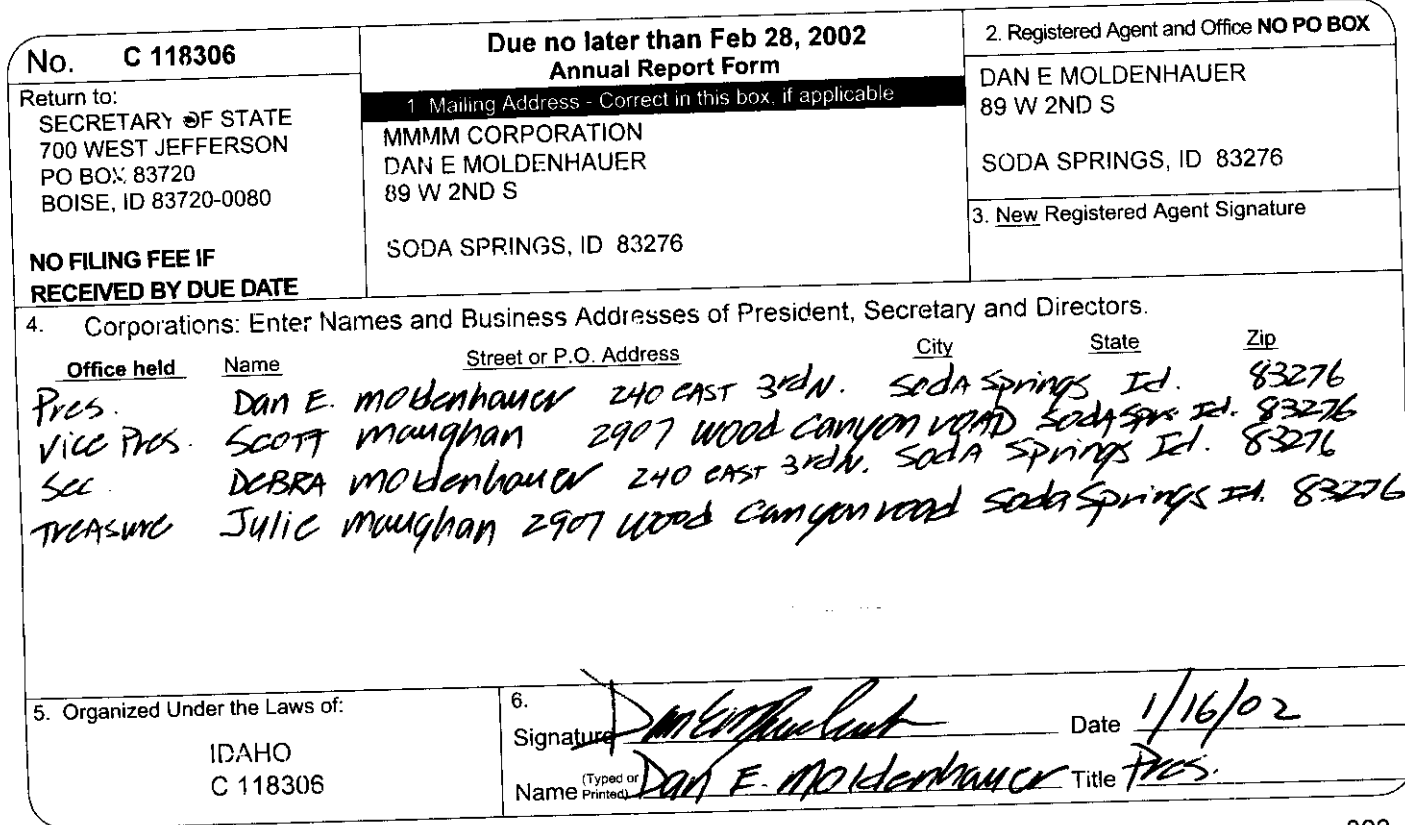 No. C 118306
Return to:
SECRETARY OF STATE
700 WEST JEFFERSON
PO BOX 83720
BOISE, ID 83720-0080
NO FILING FEE IF
RECEIVED BY DUE DATE
Due no later than Feb 28, 2002
Annual Report Form
1 Mailing Address - Correct in this box, if applicable
MMMM CORPORATION
DAN E MOLDENHAUER
89 W 2ND S
SODA SPRINGS, ID 83276
2. Registered Agent and Office NO PO BOX
DAN E MOLDENHAUER
89 W 2ND S
SODA SPRINGS, ID 83276
3. New Registered Agent Signature
4. Corporations: Enter Names and Business Addresses of President, Secretary and Directors.
Office held Name Street or P.O. Address City State Zip
Pres. Dan E. Moldenhauer 240 EAST 3rd N. Soda Springs Id. 83276
Vice Pres. SCOTT Maughan 2907 Wood Canyon ROAD Soda Sprs Id. 83276
Sec. DEBRA Moldenhauer 240 EAST 3rd N. Soda Springs Id. 83276
TREASURE Julie Maughan 2907 Wood Canyon road Soda Springs Id. 83276
5. Organized Under the Laws of:
IDAHO
C 118306
6.
Signature Date 1/16/02
Name (Typed or Printed) Dan E. Moldenhauer Title Pres.